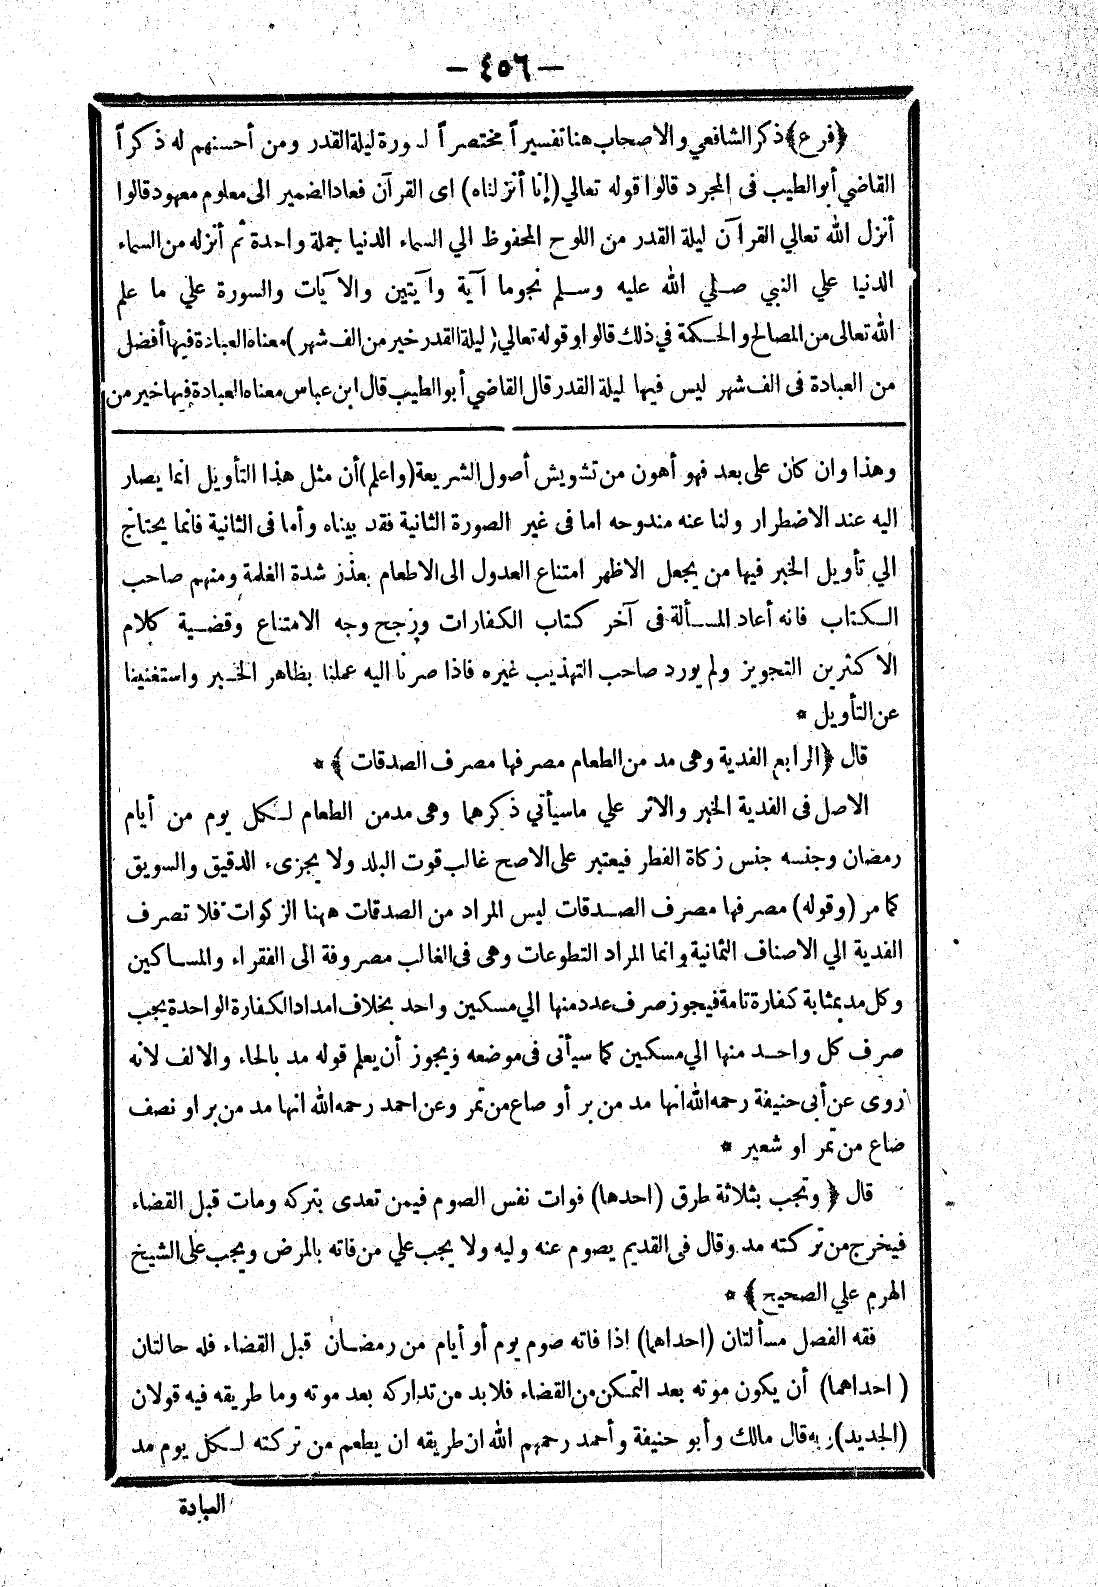 — ٤٥٦ —
﴿فرع﴾ ذكر الشافعي والاصحاب هنا تفسيراً مختصراً لسورة ليلة القدر ومن أحسنهم له ذكراً
القاضي أبو الطيب فى المجرد قالوا قوله تعالي (إنا أنزلناه) اى القرآن فعاد الضمير الى معلوم معهود قالوا
أنزل الله تعالي القرآن ليلة القدر من اللوح المحفوظ الي السماء الدنيا جملة واحدة ثم أنزله من السماء
الدنيا علي النبي صلي الله عليه وسلم نجوما آية وآيتين والآيات والسورة علي ما علم
الله تعالى من المصالح والحكمة في ذلك قالوا وقوله تعالي (ليلة القدر خير من الف شهر) معناه العبادة فيها أفضل
من العبادة فى الف شهر ليس فيها ليلة القدر قال القاضي أبو الطيب قال ابن عباس معناه العبادة فيها خير من
وهذا وان كان على بعد فهو أهون من تشويش أصول الشريعة (واعلم) أن مثل هذا التأويل انما يصار
اليه عند الاضطرار ولنا عنه مندوحه اما فى غير الصورة الثانية فقد بيناه وأما فى الثانية فانما يحتاج
الي تأويل الخبر فيها من يجعل الاظهر امتناع العدول الى الاطعام بعذر شدة الغلمة ومنهم صاحب
الكتاب فانه أعاد المسألة فى آخر كتاب الكفارات ورجح وجه الامتناع وقضية كلام
الاكثرين التجويز ولم يورد صاحب التهذيب غيره فاذا صرنا اليه عملنا بظاهر الخبر واستغنينا
عن التأويل *
قال ﴿الرابع الفدية وهى مد من الطعام مصرفها مصرف الصدقات ﴾ *
الاصل فى الفدية الخبر والاثر علي ماسيأتي ذكرهما وهى مد من الطعام لكل يوم من أيام
رمضان وجنسه جنس زكاة الفطر فيعتبر على الاصح غالب قوت البلد ولا يجزىء الدقيق والسويق
كما مر (وقوله) مصرفها مصرف الصدقات ليس المراد من الصدقات ههنا الزكوات فلا تصرف
الفدية الي الاصناف الثمانية وانما المراد التطوعات وهى فى الغالب مصروفة الى الفقراء والمساكين
وكل مد بمثابة كفارة تامة فيجوز صرف عدد منها الي مسكين واحد بخلاف امداد الكفارة الواحدة يجب
صرف كل واحد منها الي مسكين كما سيأتى فى موضعه ويجوز أن يعلم قوله مد بالحاء والالف لانه
روى عن أبى حنيفة رحمه الله انها مد من بر أو صاع من تمر وعن احمد رحمه الله انها مد من بر او نصف
صاع من تمر او شعير *
قال ﴿ وتجب بثلاثة طرق (احدها) فوات نفس الصوم فيمن تعدى بتركه ومات قبل القضاء
فيخرج من تركته مد وقال فى القديم يصوم عنه وليه ولا يجب علي من فاته بالمرض ويجب على الشيخ
الهرم علي الصحيح ﴾ *
فقه الفصل مسألتان (احداهما) اذا فاته صوم يوم أو أيام من رمضان قبل القضاء فله حالتان
(احداهما) أن يكون موته بعد التمكن من القضاء فلابد من تداركه بعد موته وما طريقه فيه قولان
(الجديد) وبه قال مالك وأبو حنيفة وأحمد رحمهم الله ان طريقه ان يطعم من تركته لكل يوم مد
العبادة